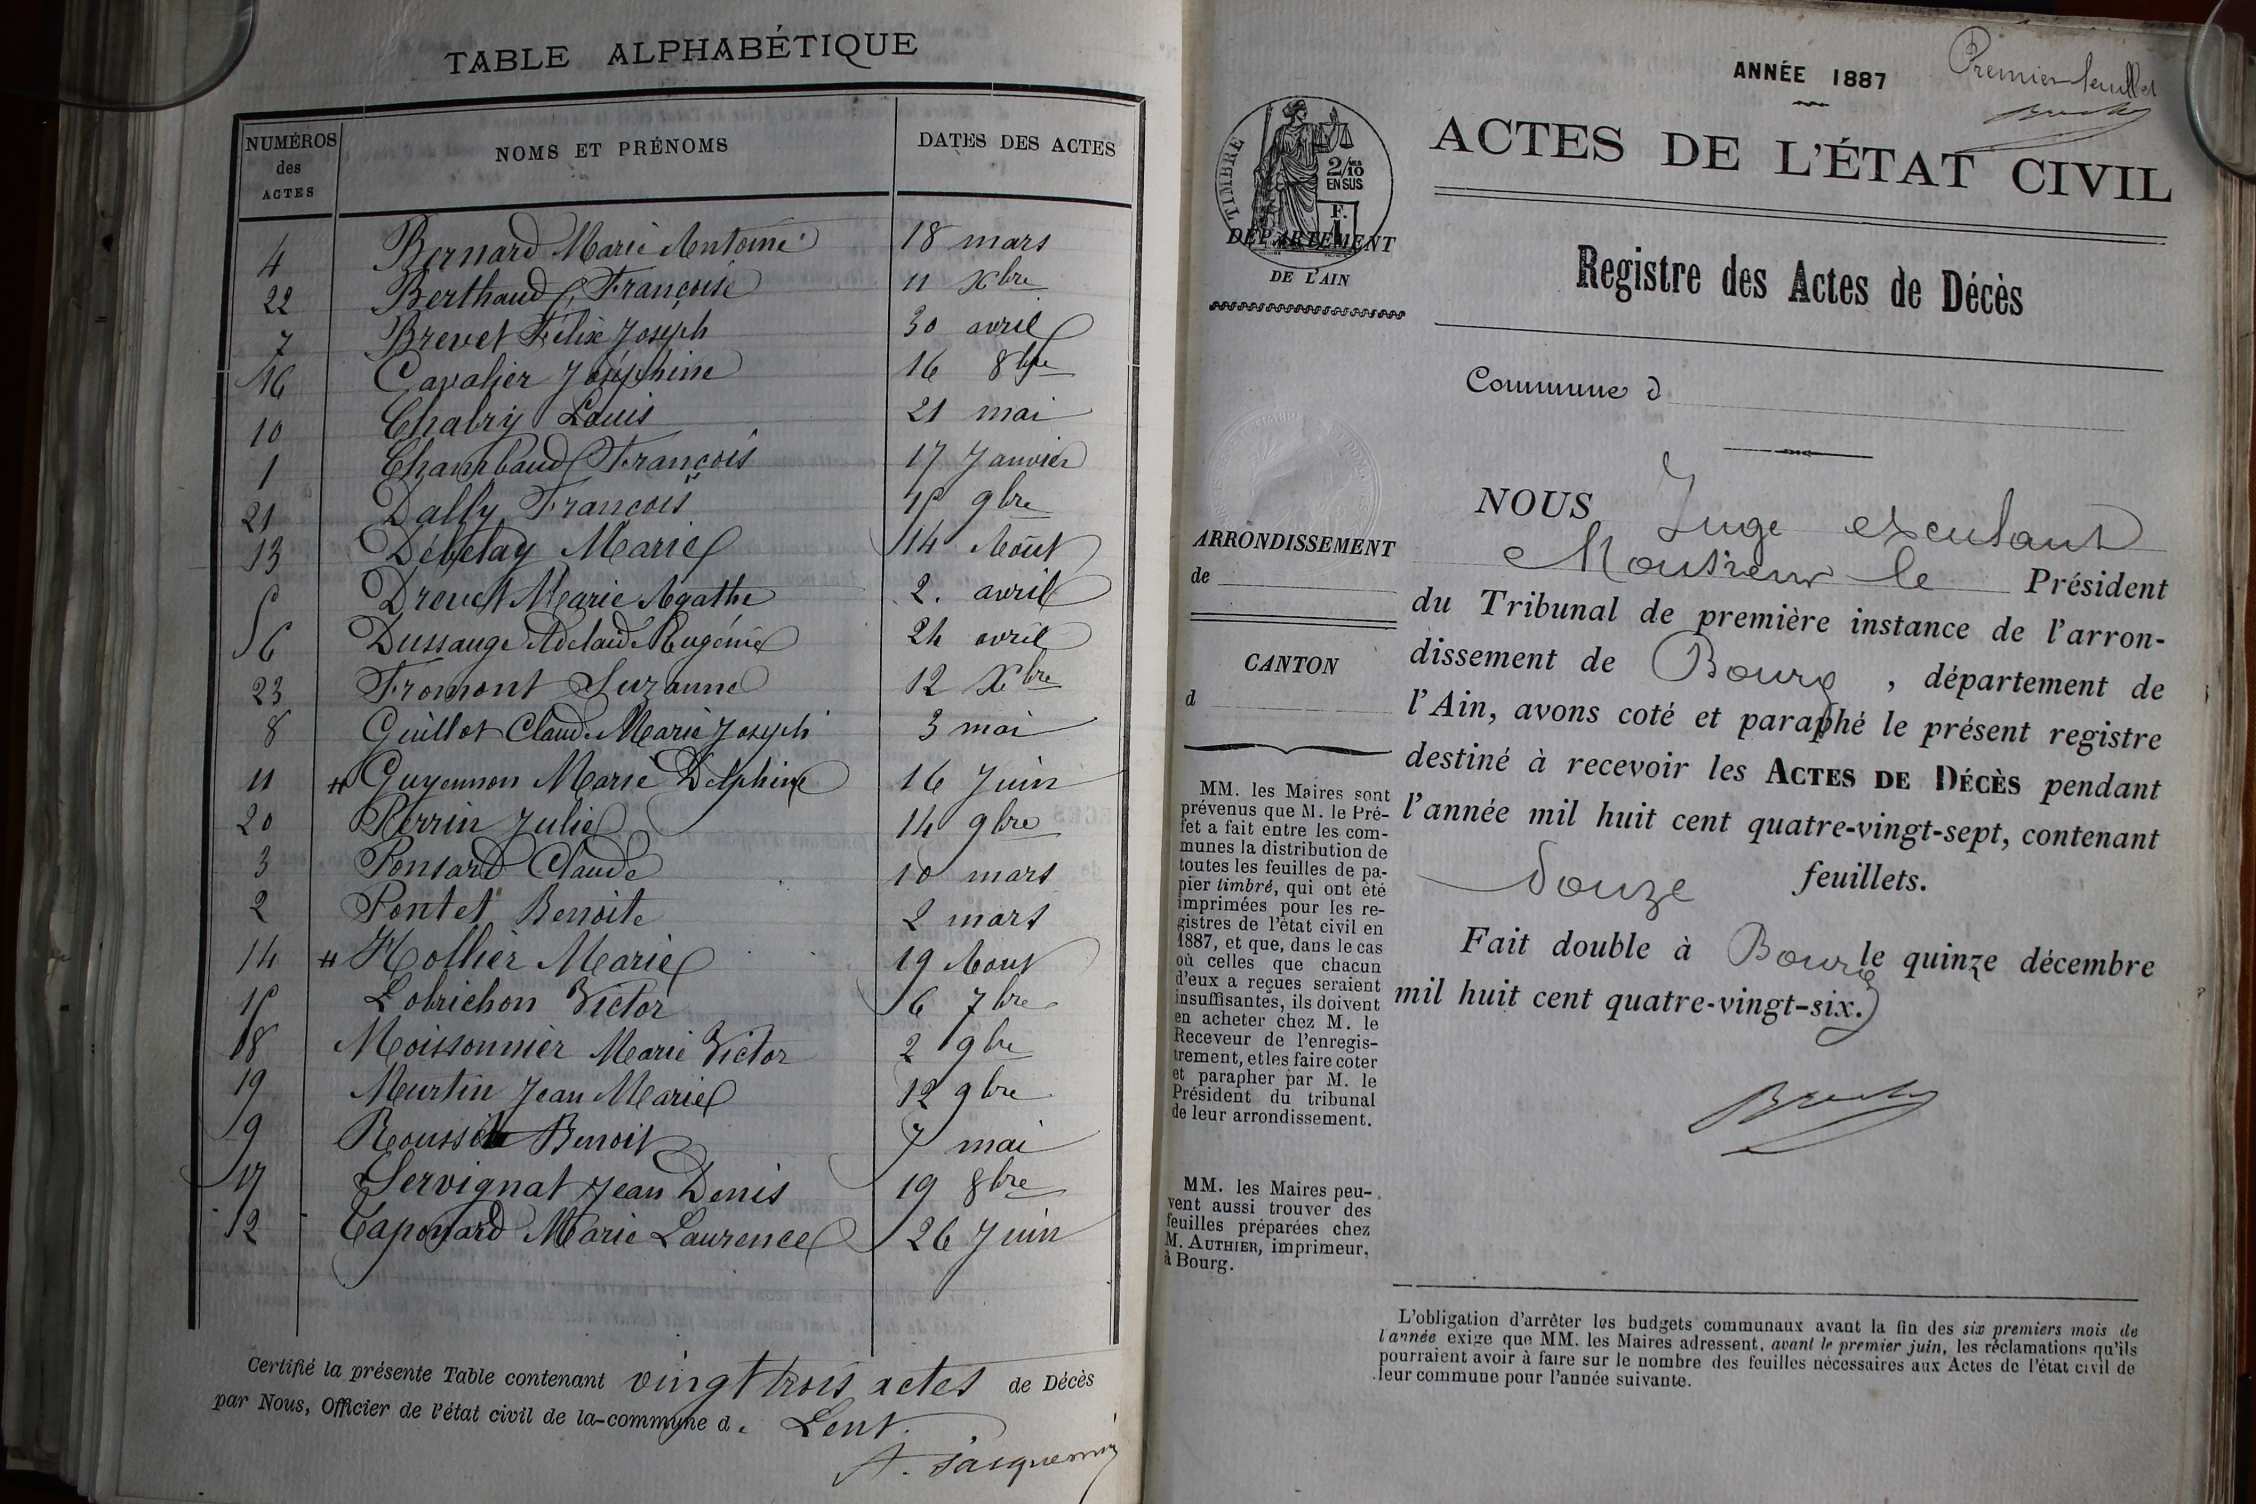 TABLE ALPHABÉTIQUE
NUMÉROS des ACTES NOMS ET PRÉNOMS DATES DES ACTES
4 Bernard Marie Antoine 18 mars
22 Berthaud Françoise 11 Xbre
7 Brevet Félix Joseph 30 avril
16 Cavalier Joséphine 16 8bre
10 Chabry Louis 21 mai
1 Chambaud François 17 Janvier
21 Dally François 15 9bre
13 Débelay Marie 14 Août
5 Drevet Marie Agathe 2. avril
6 Dussauge Adelaide Eugénie 24 avril
23 Fromont Suzanne 12 Xbre
8 Guillot Claude Marie Joseph 3 mai
11 # Guyennon Marie Delphine 16 Juin
20 Perrin Julie 14 9bre
3 Ponsard Claude 10 mars
2 Pontet Benoite 2 mars
14 # Hollier Marie 19 Aout
15 Lobrichon Victor 6 7bre
18 Moissonnier Marie Victor 2 9bre
19 Murtin Jean Marie 12 9bre
9 Benoit 7 mai
17 Servignat Jean Denis 19 8bre
12 Taponard Marie Laurence 26 Juin
Certifié la présente Table contenant vingt trois actes de Décès
par Nous, Officier de l'état civil de la commune d. Lent.
A. Jacquemin
Premier feuillet
ANNÉE 1887
ACTES DE L'ÉTAT CIVIL
TIMBRE
2/10 EN SUS
F.
DÉPARTEMENT
DE L'AIN
Registre des Actes de Décès
Commune d
ARRONDISSEMENT
de
CANTON
d
NOUS Juge exculant
Monsieur le Président
du Tribunal de première instance de l'arron-
dissement de Bourg, département de
l'Ain, avons coté et paraphé le présent registre
destiné à recevoir les ACTES DE DÉCÈS pendant
l'année mil huit cent quatre-vingt-sept, contenant
Douze feuillets.
Fait double à Bourg le quinze décembre
mil huit cent quatre-vingt-six.
MM. les Maires sont
prévenus que M. le Pré-
fet a fait entre les com-
munes la distribution de
toutes les feuilles de pa-
pier timbré, qui ont été
imprimées pour les re-
gistres de l'état civil en
1887, et que, dans le cas
où celles que chacun
d'eux a reçues seraient
insuffisantes, ils doivent
en acheter chez M. le
Receveur de l'enregis-
trement, et les faire coter
et parapher par M. le
Président du tribunal
de leur arrondissement.
MM. les Maires peu-
vent aussi trouver des
feuilles préparées chez
M. AUTHIER, imprimeur,
à Bourg.
L'obligation d'arrêter les budgets communaux avant la fin des six premiers mois de
l'année exige que MM. les Maires adressent, avant le premier juin, les réclamations qu'ils
pourraient avoir à faire sur le nombre des feuilles nécessaires aux Actes de l'état civil de
leur commune pour l'année suivante.